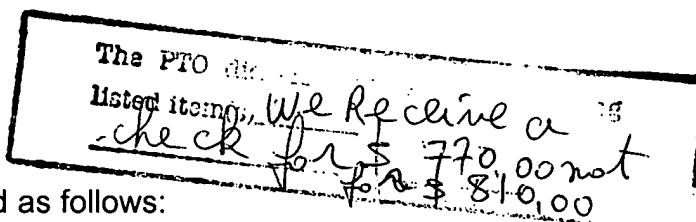 The PTO
listed items, We Receive a
check for $ 770,00 not
for $ 810,00
d as follows: